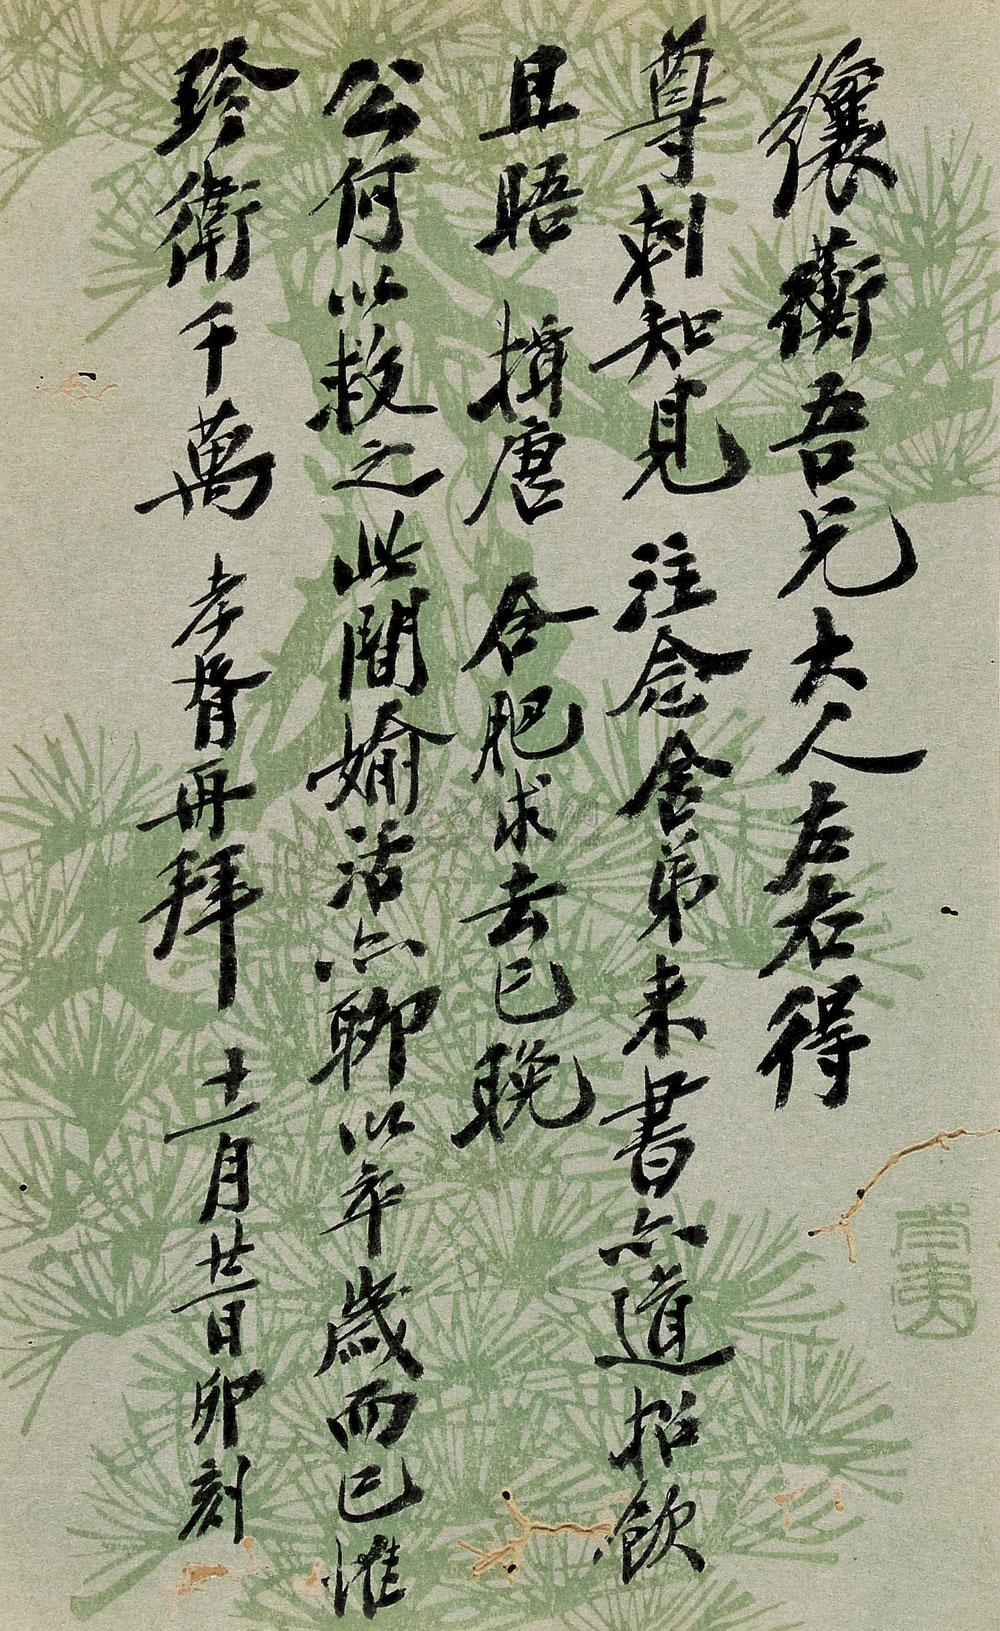 纕蘅吾兄大人左右得
尊刺知見 注念舍弟來書亦道招飲
且晤 揖唐 合肥求去已晚
公何以救之此間婾活亦聊以卒歲而已惟
珍衛千萬 孝胥再拜 十一月廿一日卯刻